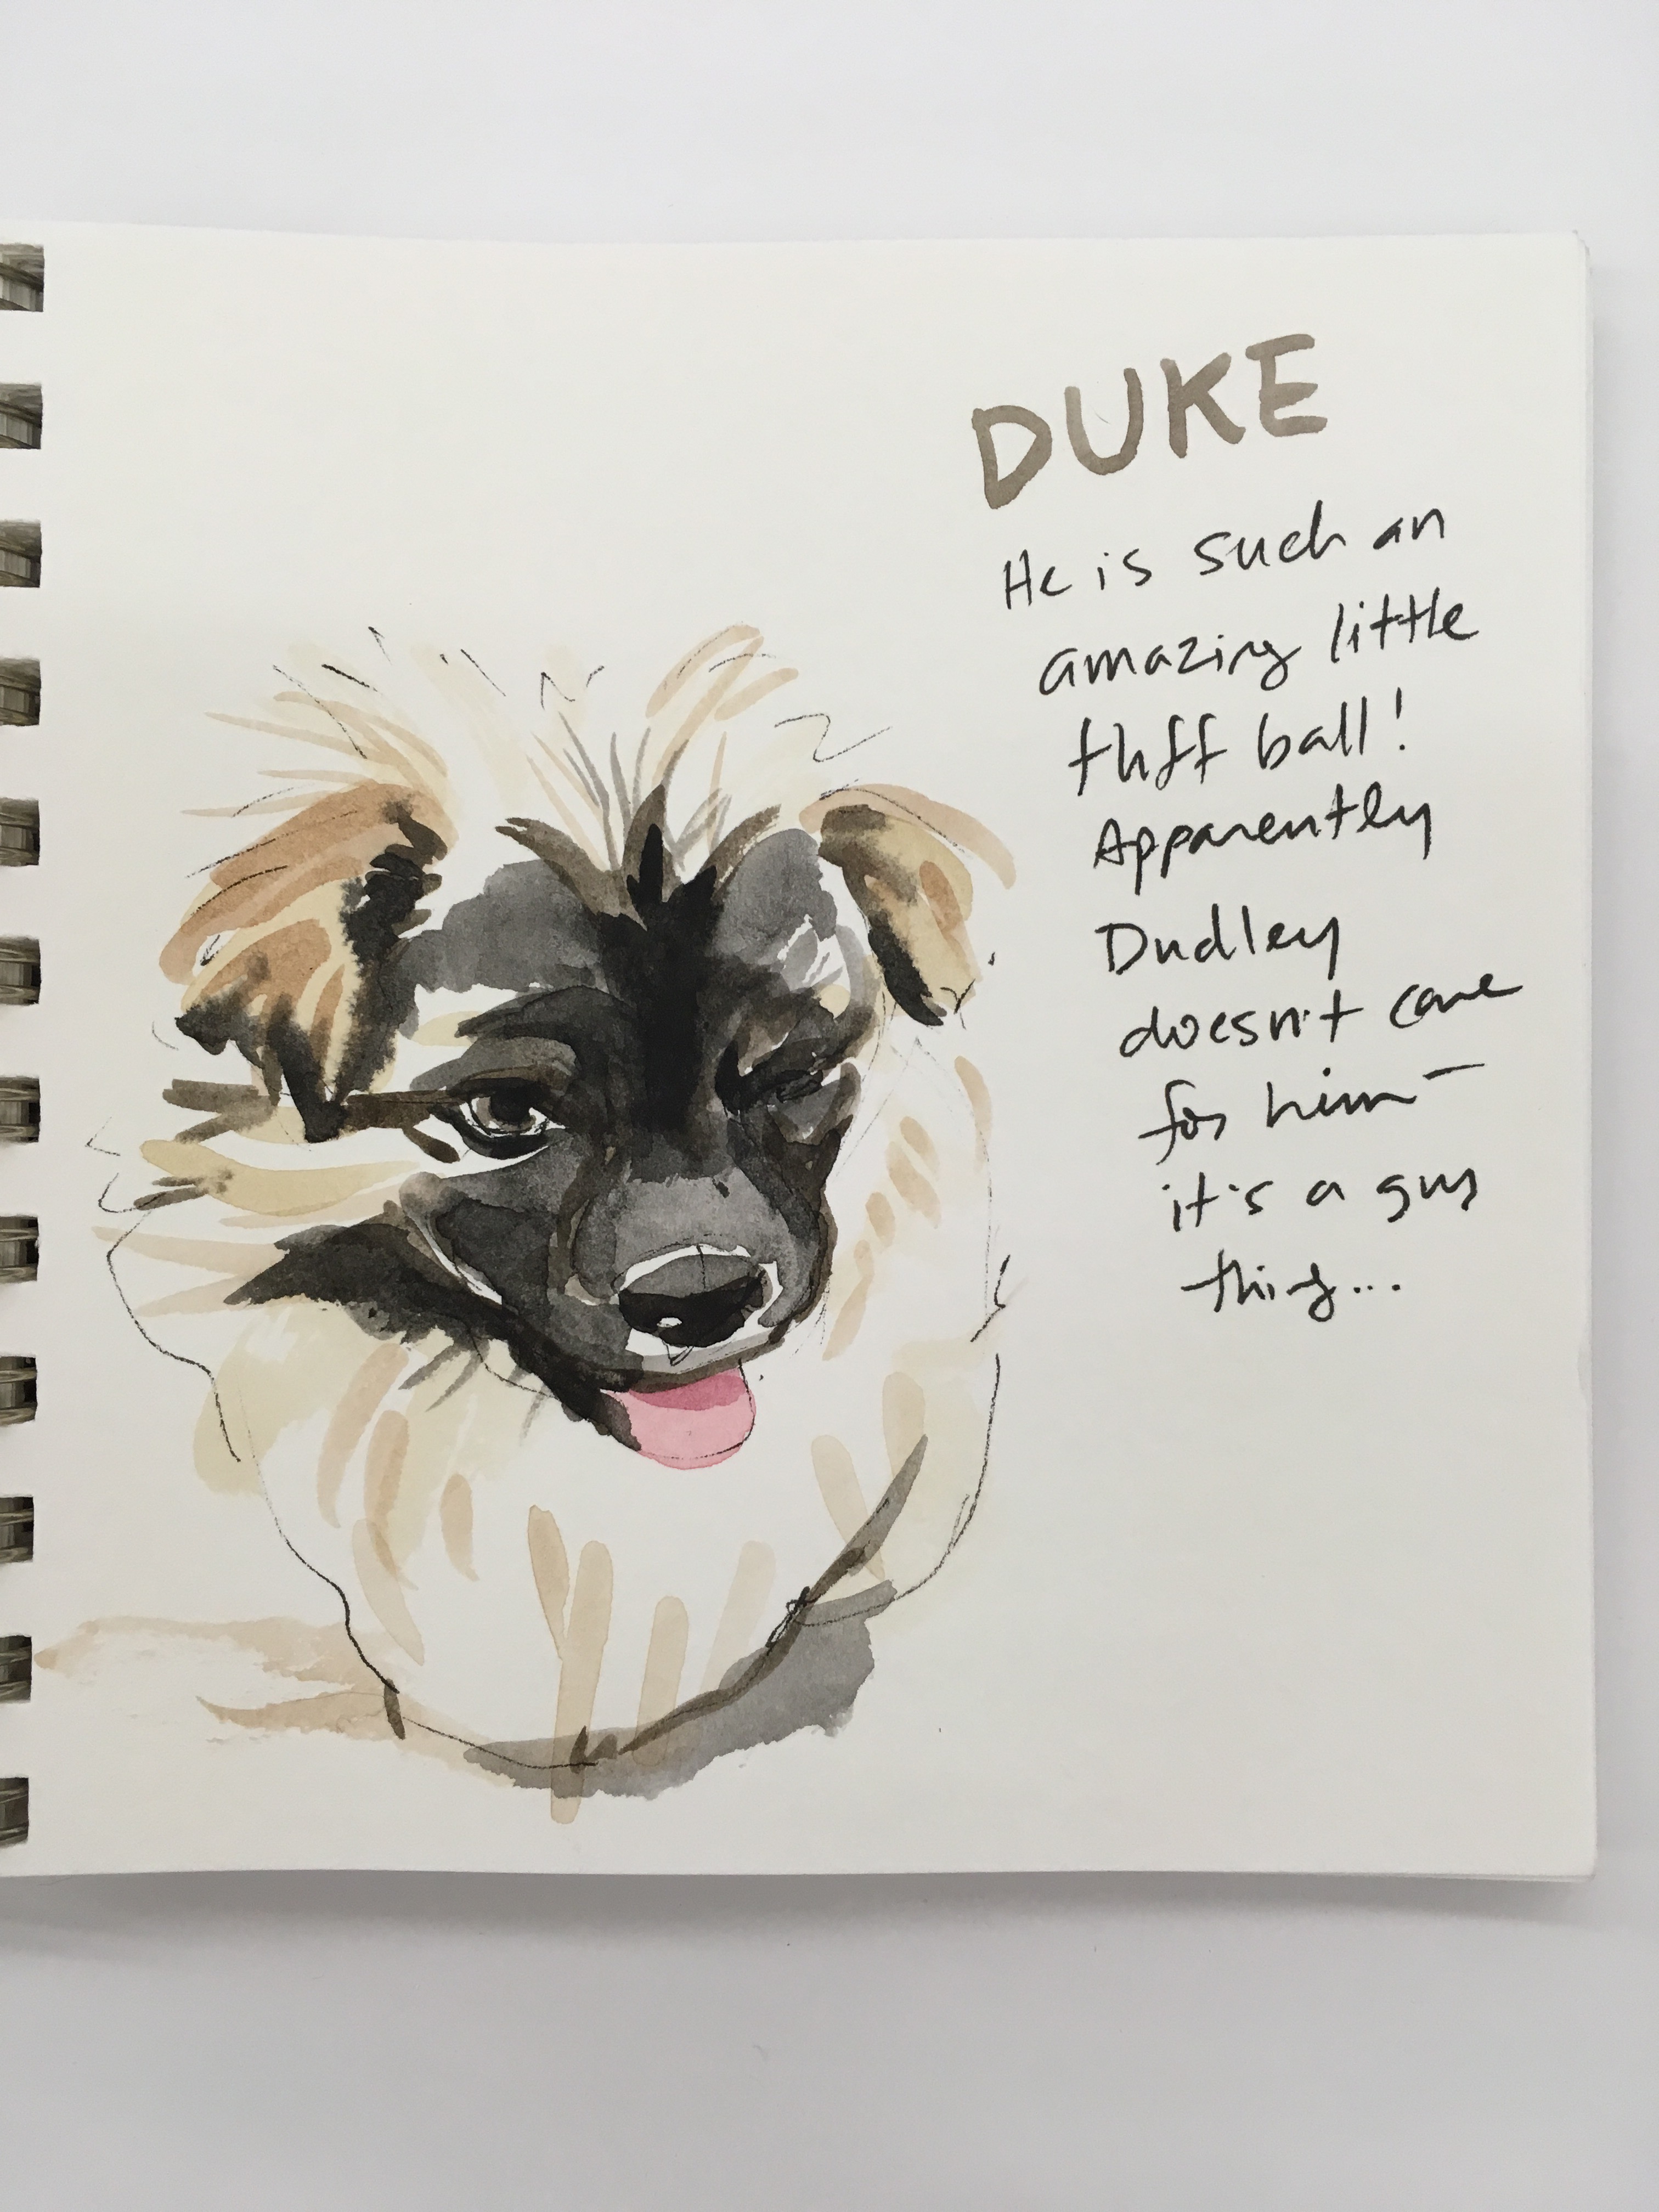 DUKE
He is such an
amazing little
fluff ball!
Apparently
Dudley
doesn't care
for him–
it's a guy
thing...